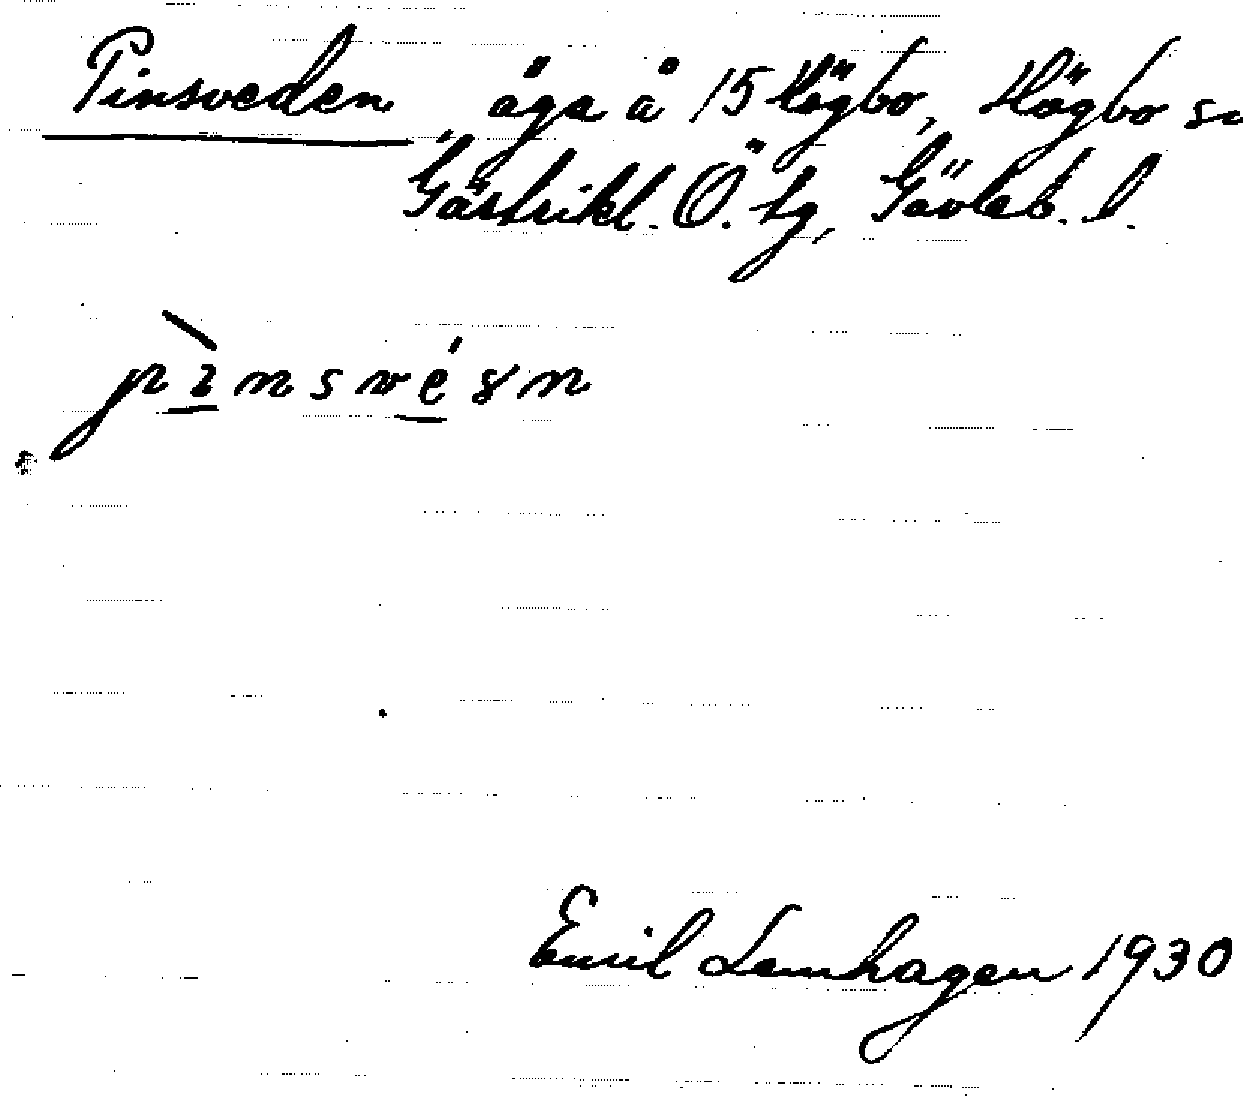 Pinsveden äga å 15 Högbo, Högbo sn
Gästrikl. Ö. tg, Gävleb. l.
Emil Lemhagen 1930